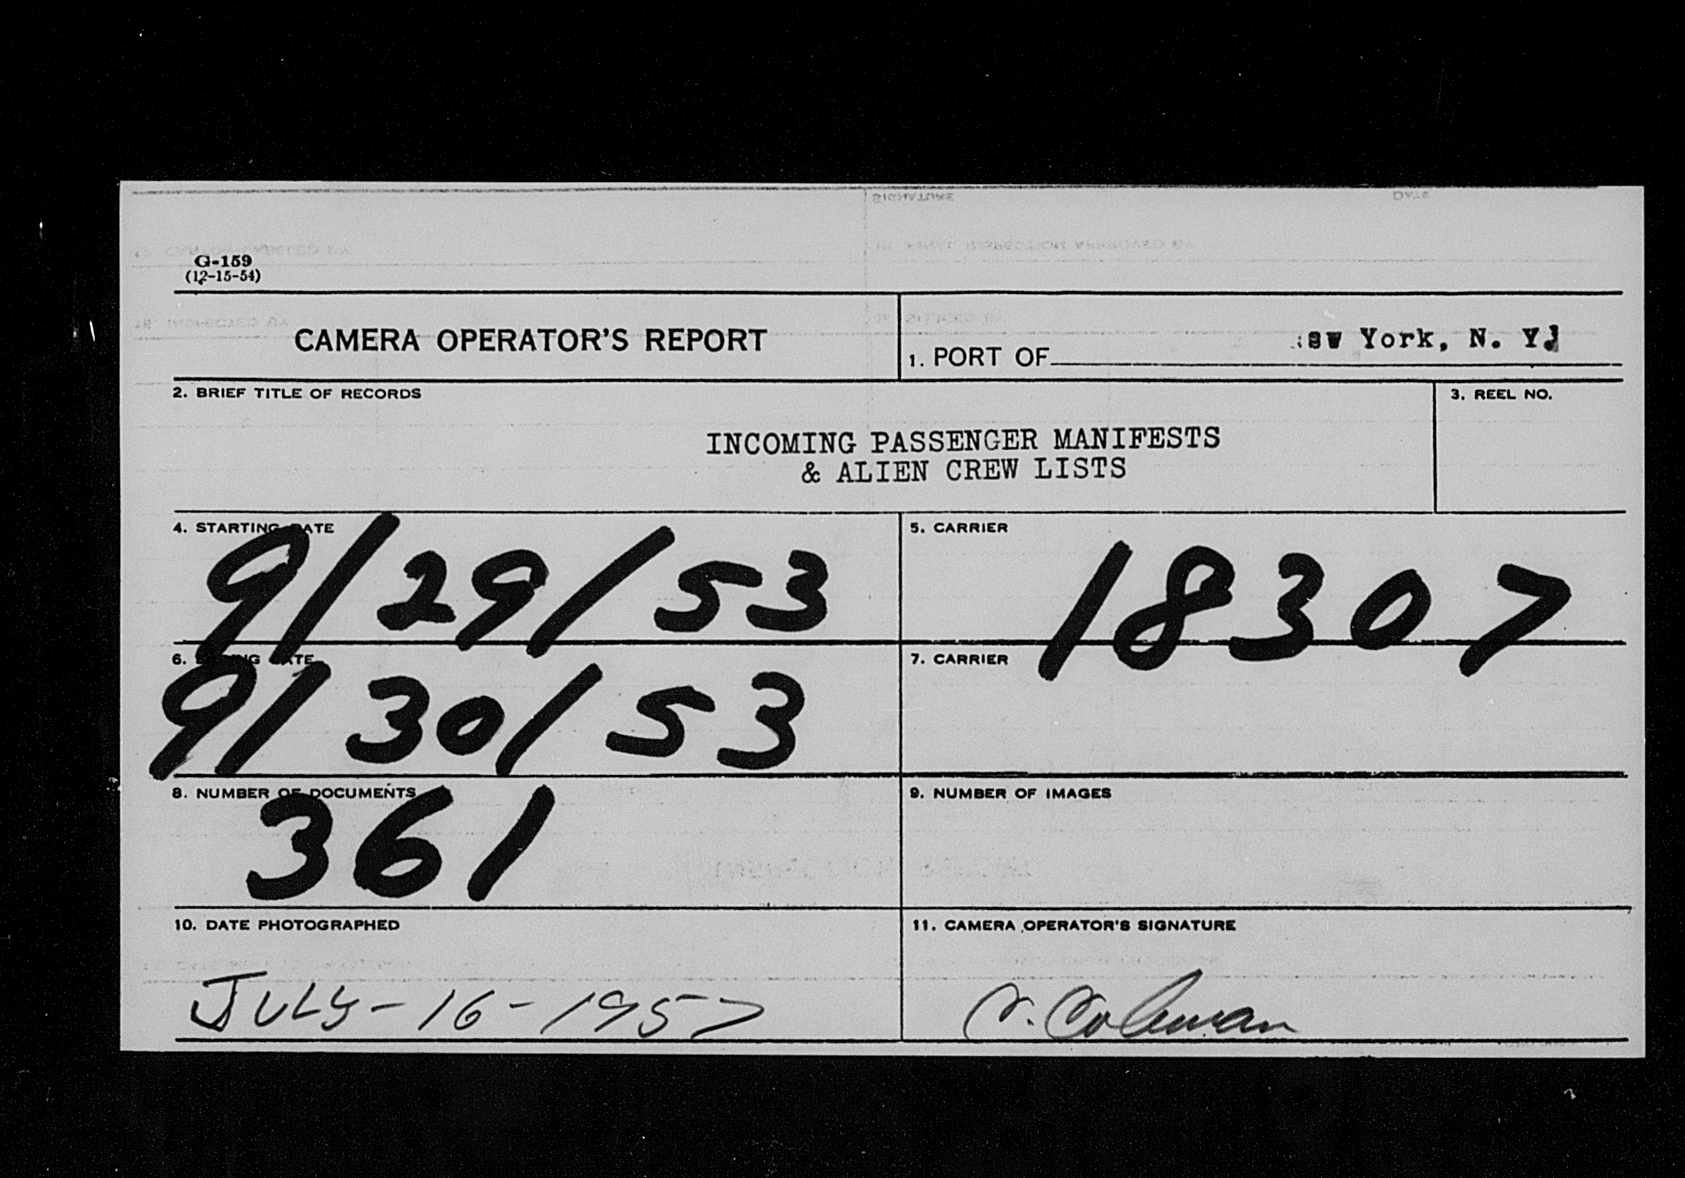 G-159
(12-15-54)
CAMERA OPERATOR'S REPORT
1. PORT OF York, N. Y.
2. BRIEF TITLE OF RECORDS
3. REEL NO.
INCOMING PASSENGER MANIFESTS
& ALIEN CREW LISTS
4. STARTING DATE
9/29/53
5. CARRIER
18307
6.
9/30/53
7. CARRIER
8. NUMBER OF DOCUMENTS
361
9. NUMBER OF IMAGES
10. DATE PHOTOGRAPHED
JULY-16-1957
11. CAMERA OPERATOR'S SIGNATURE
Coleman